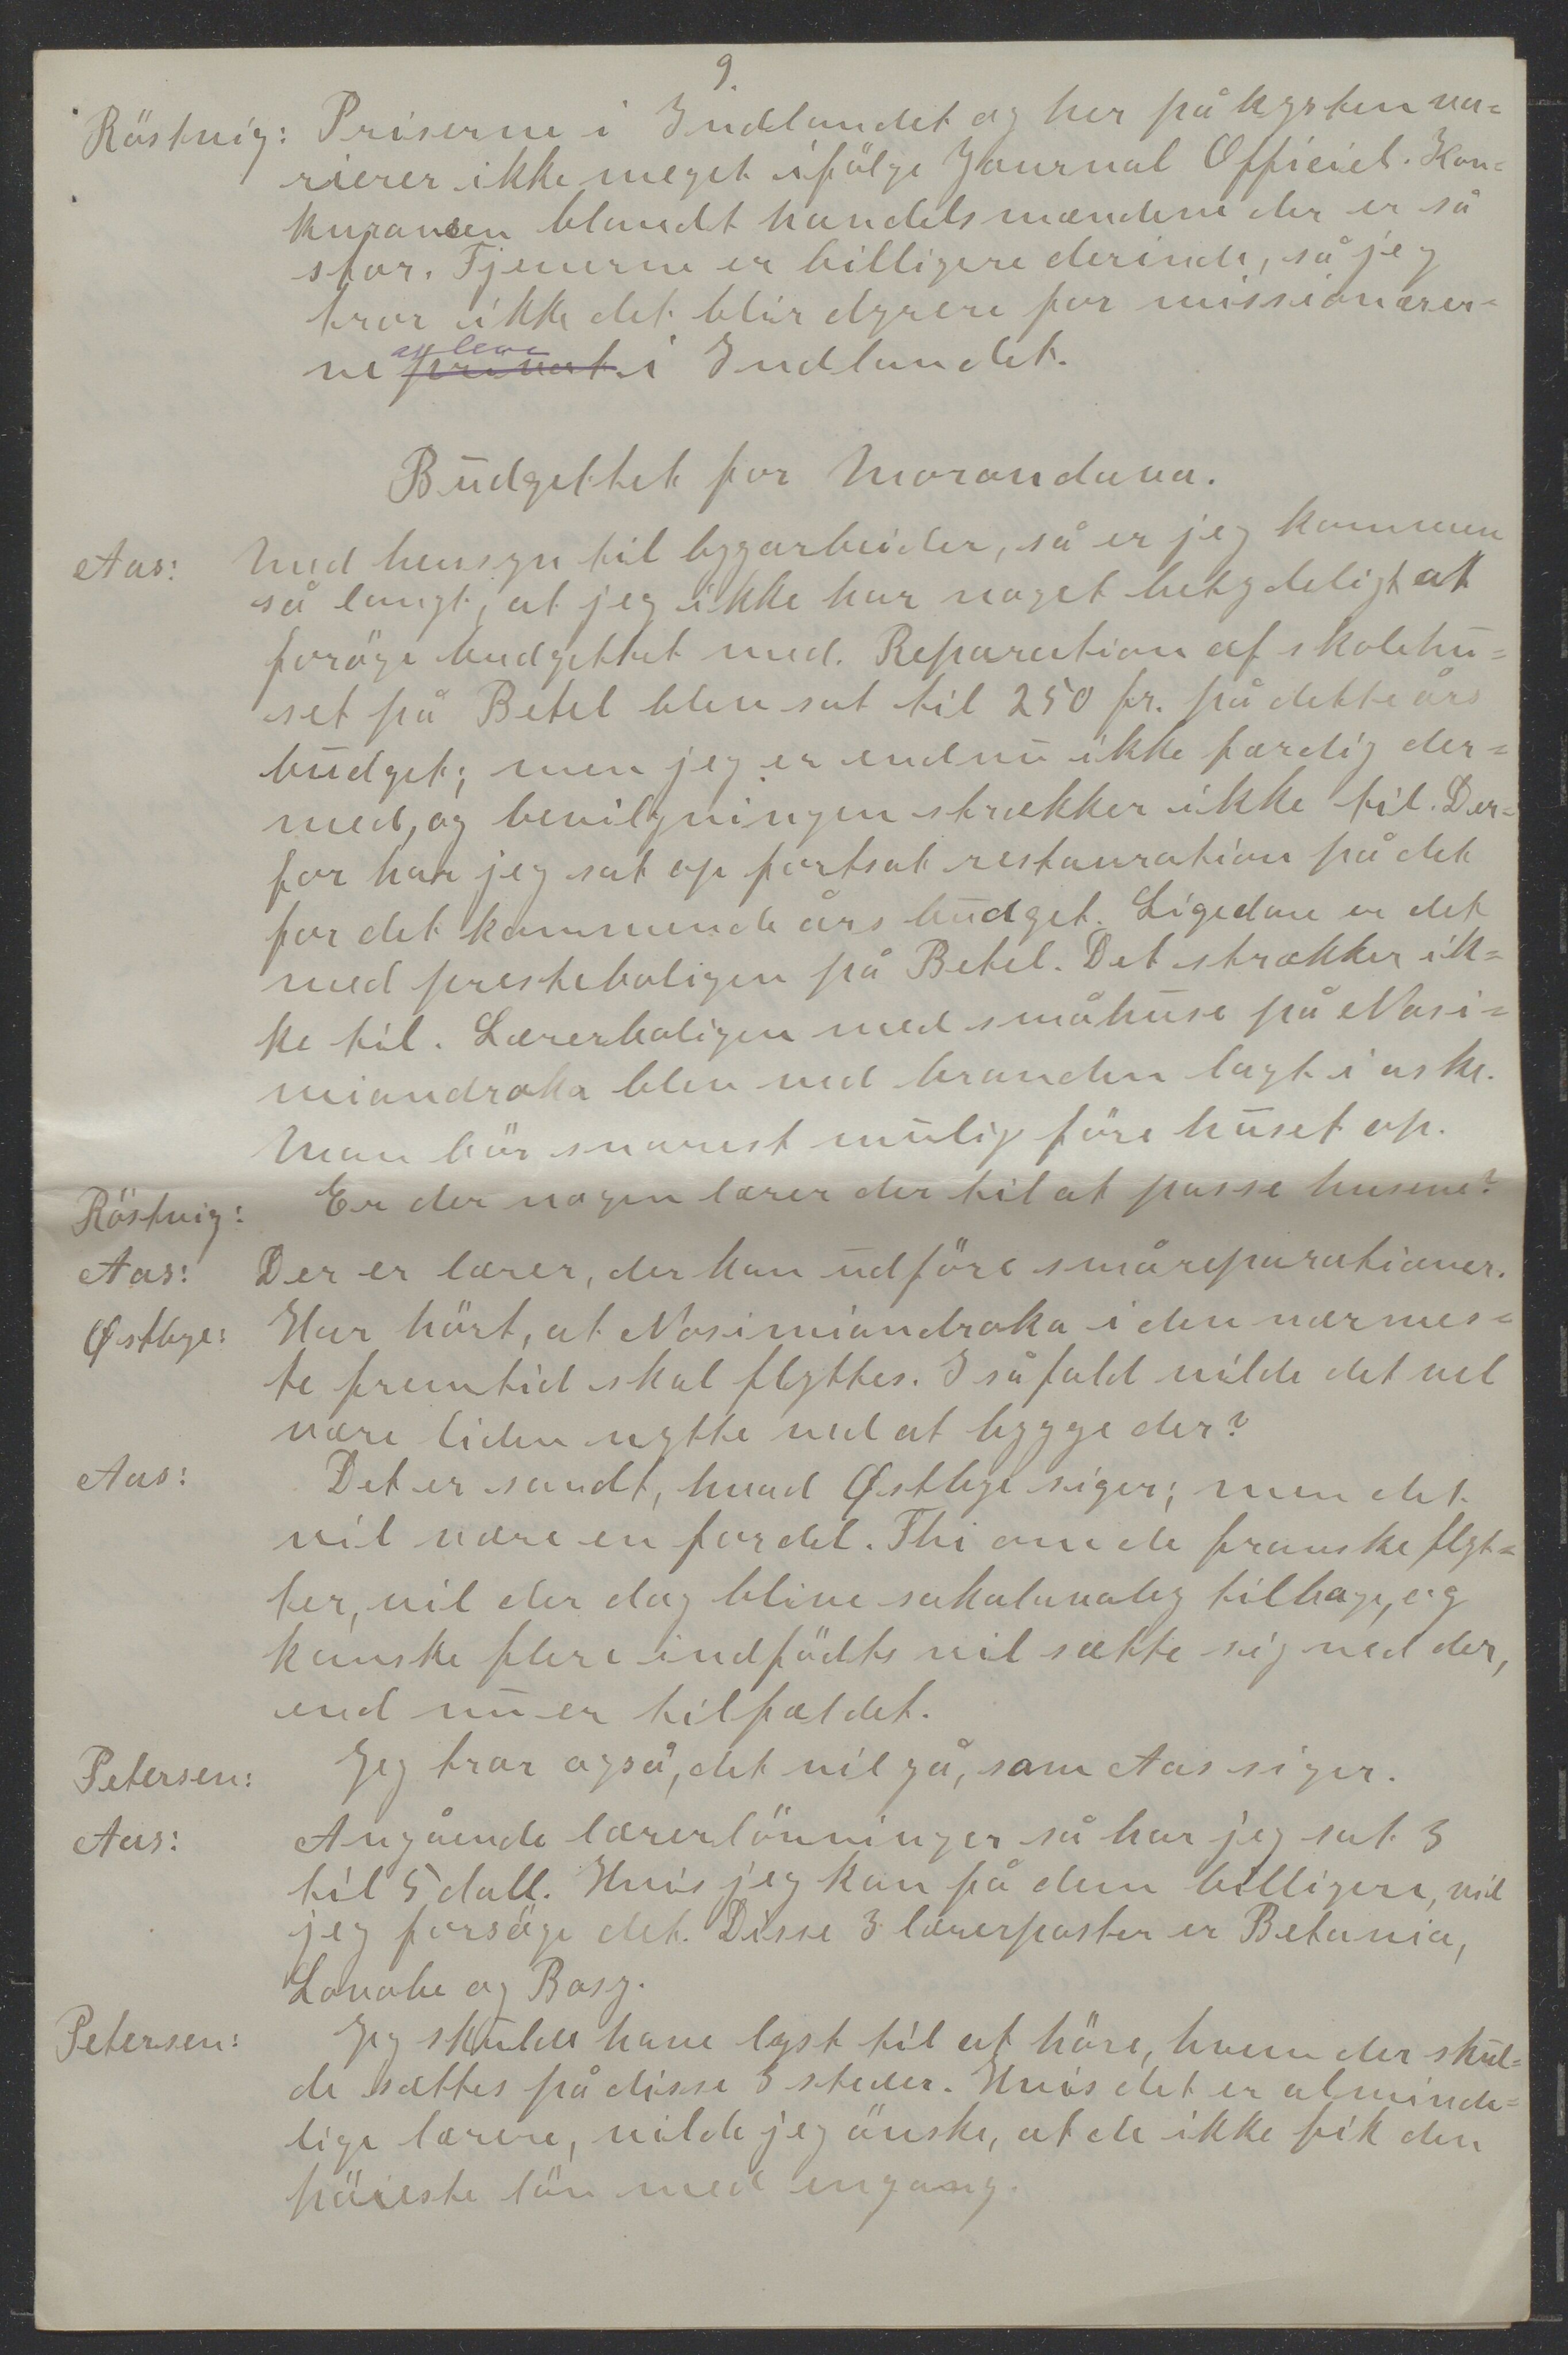 9.
Röstvig: Priserne i Indlandet og her på kysten va=
rierer ikke meget ifölge Journal Officiel. Kon=
kurancen blandt handelsmændene der er så
stor. Tjenerne er billigere derinde, så jeg
tror ikke det blir dyrere for missionærer=
ne at leve i Indlandet.
Budgettet for Morondava.
Aas: Med hensyn til bygarbeider, så er jeg kommen
så langt, at jeg ikke har noget betydeligt at
foröge budgettet med. Reparation af skolehu=
set på Betel blev sat til 250 fr. på dette års
budget; men jeg er endnu ikke færdig der=
med, og bevilgningen strækker ikke til. Der=
for har jeg sat op fortsat restauration på det
for det kommende års budget. Ligedan er det
med presteboligen på Betel. Det strækker ik=
ke til. Lærerboligen med småhuse på Nosi=
miandroka blev ved branden lagt i aske.
Man bör snarest mulig före huset op.
Röstvig: Er der nogen lærer der til at passe husene?
Aas: Der er lærer, der kan udföre småreparationer.
Østbye: Har hört, at Nosimiandroka i den nærmes=
te fremtid skal flyttes. I så fald vilde det vel
være liden nytte ved at bygge der?
Aas: Det er sandt, hvad Østbye siger; men det
vil være en fordel. Thi om de franske flyt=
ter, vil der dog blive sakalavaby tilbage, og
kanske flere indfödte vil sætte sig ned der,
end nu er tilfældet.
Petersen: Jeg tror også, det vil gå, som Aas siger.
Aas: Angående lærerlönninger så har jeg sat 3
til 5 doll. Hvis jeg kan få dem billigere, vil
jeg forsöge det. Disse 3 lærerposter er Betania,
Lovobe og Bosy.
Petersen: Jeg skulde have lyst til at höre, hvem der skul=
de sættes på disse 3 steder. Hvis det er alminde=
lige lærere, vilde jeg önske, at de ikke fik den
höieste lön med engang.